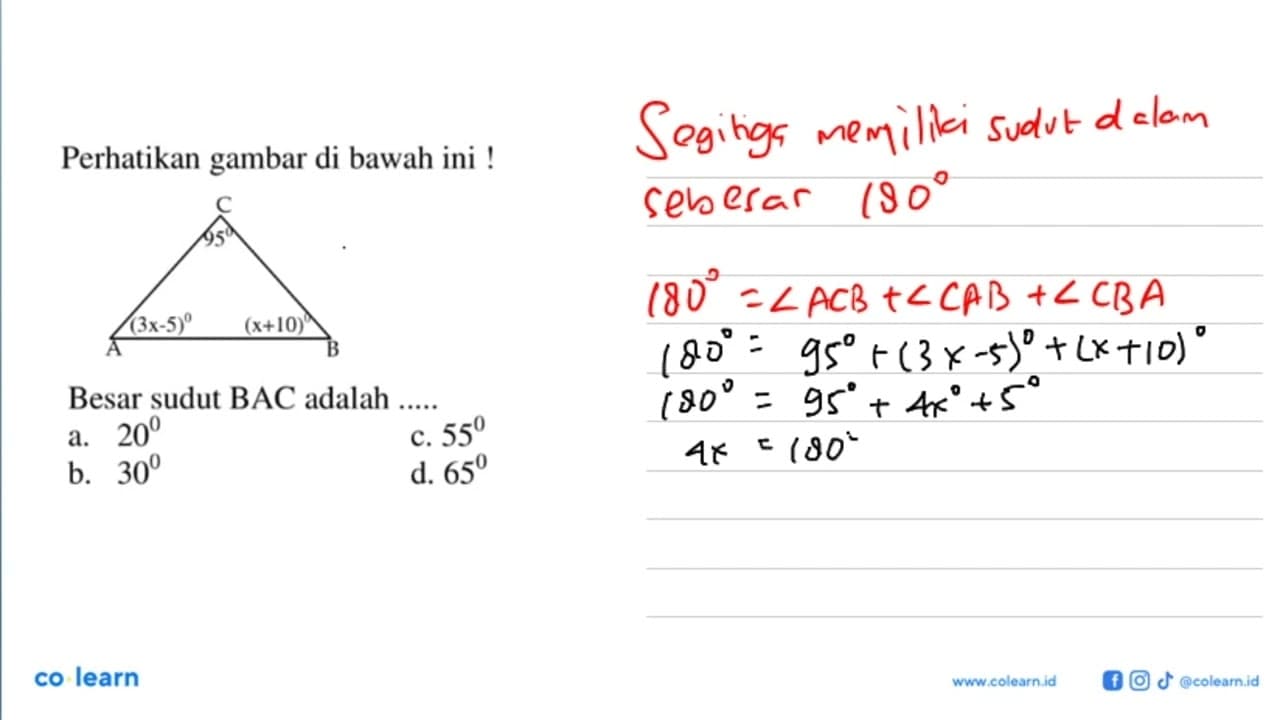 Perhatikan gambar di bawah ini !
C
95⁰
(3x-5)⁰ (x+10)⁰
A B
Besar sudut BAC adalah .....
a. 20⁰ c. 55⁰
b. 30⁰ d. 65⁰
Segitiga memiliki sudut dalam
sebesar 180°
180° = ∠ ACB + ∠ CAB + ∠ CBA
180° = 95° + (3x-5)° + (x+10)°
180° = 95° + 4x° + 5°
4x = 180°
co learn
www.colearn.id @colearn.id